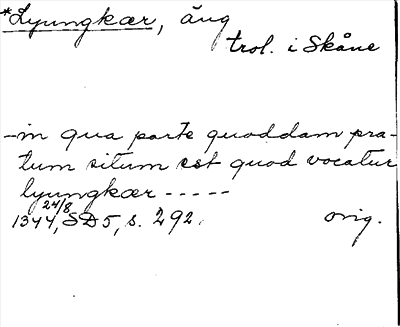 *Lyungkær, äng
trol. i Skåne
—in qua parte quoddam pra-
tum situm est quod vocatur
lyungkær -----
1344 24/8, SD 5, s. 292. orig.